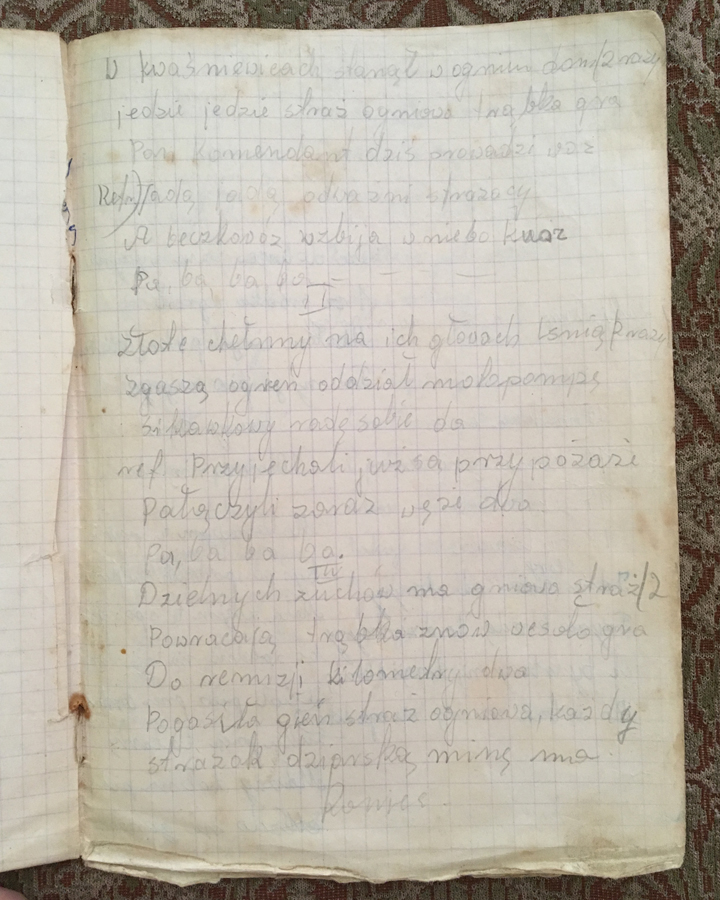 W kwaśniewicach stanął w ogniu dom/2 razy
jedzie jedzie straż ogniowa trąbka gra
Pan Komendant dziś prowadzi wóz
Ref) Jadą jadą odważni strażacy
A beczkowóz wzbija w niebo kurz
Pa, ba, ba ba – – – –
II
Złote chełmy na ich głowach lśnią/2 razy
zgaszą ogień oddział motopompę
sikawkowy radę sobie da
ref. Przyjechali już są przy pożaże
Połączyli zaraz węże dwa
Pa, ba ba ba.
III
Dzielnych zuchów ma gniowa straż/2
Powracają trąbka znów wesoło gra
Do remizji kilometry dwa
Pogasiła gień straż ogniowa, każdy
strażak dziarską minę ma.
Koniec.